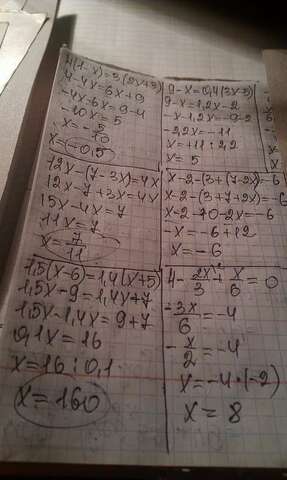 4(1-x)=3(2x+3)
4-4x=6x+9
-4x-6x=9-4
-10x=5
x=-5/10
x=(-0,5)
12x-(7-3x)=4x
12x-7+3x=4x
15x-4x=7
11x=7
x=7/11
1,5(x-6)=1,4(x+5)
1,5x-9=1,4x+7
1,5x-1,4x=9+7
0,1x=16
x=16:0,1
x=160
9-x=0,4(3x-5)
9-x=1,2x-2
-x-1,2x=-9-2
-2,2x=-11
x=+11:2,2
x=5
x-2-(3+(7-2x)=-6
x-2-(3+7+2x)=-6
x-2-10-2x=-6
-x=-6+12
x=-6
4-2x/3+x/6=0
-3x/6=-4
-x/2=-4
x=-4·(-2)
x=8